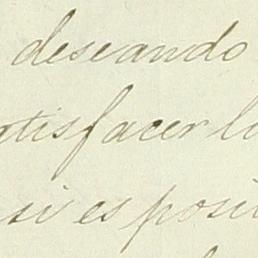 deseando
atisfacer lo
si es posi